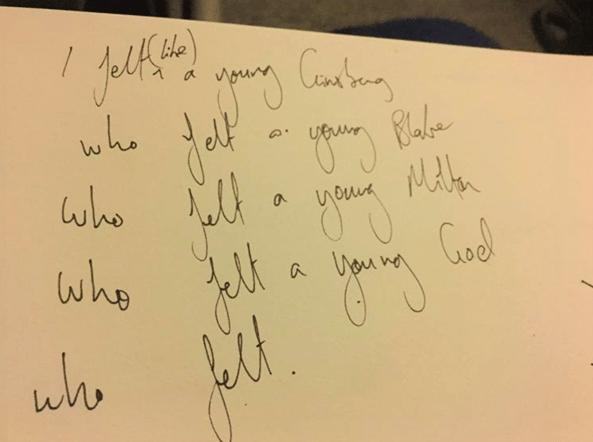 I felt (like) a young Ginsberg
who felt a young Blake
who felt a young Milton
who felt a young God
who felt.